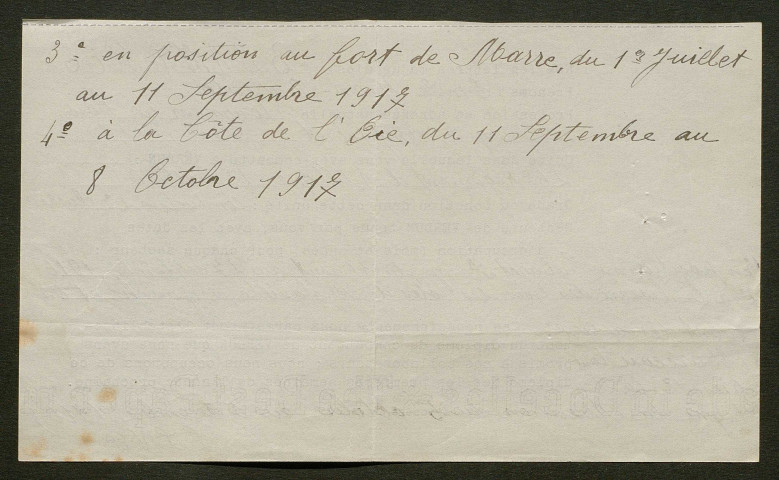 3e en position au fort de Marre, du 1er Juillet
au 11 Septembre 1917
4e à la Côte de l'Oie, du 11 Septembre au
8 Octobre 1917